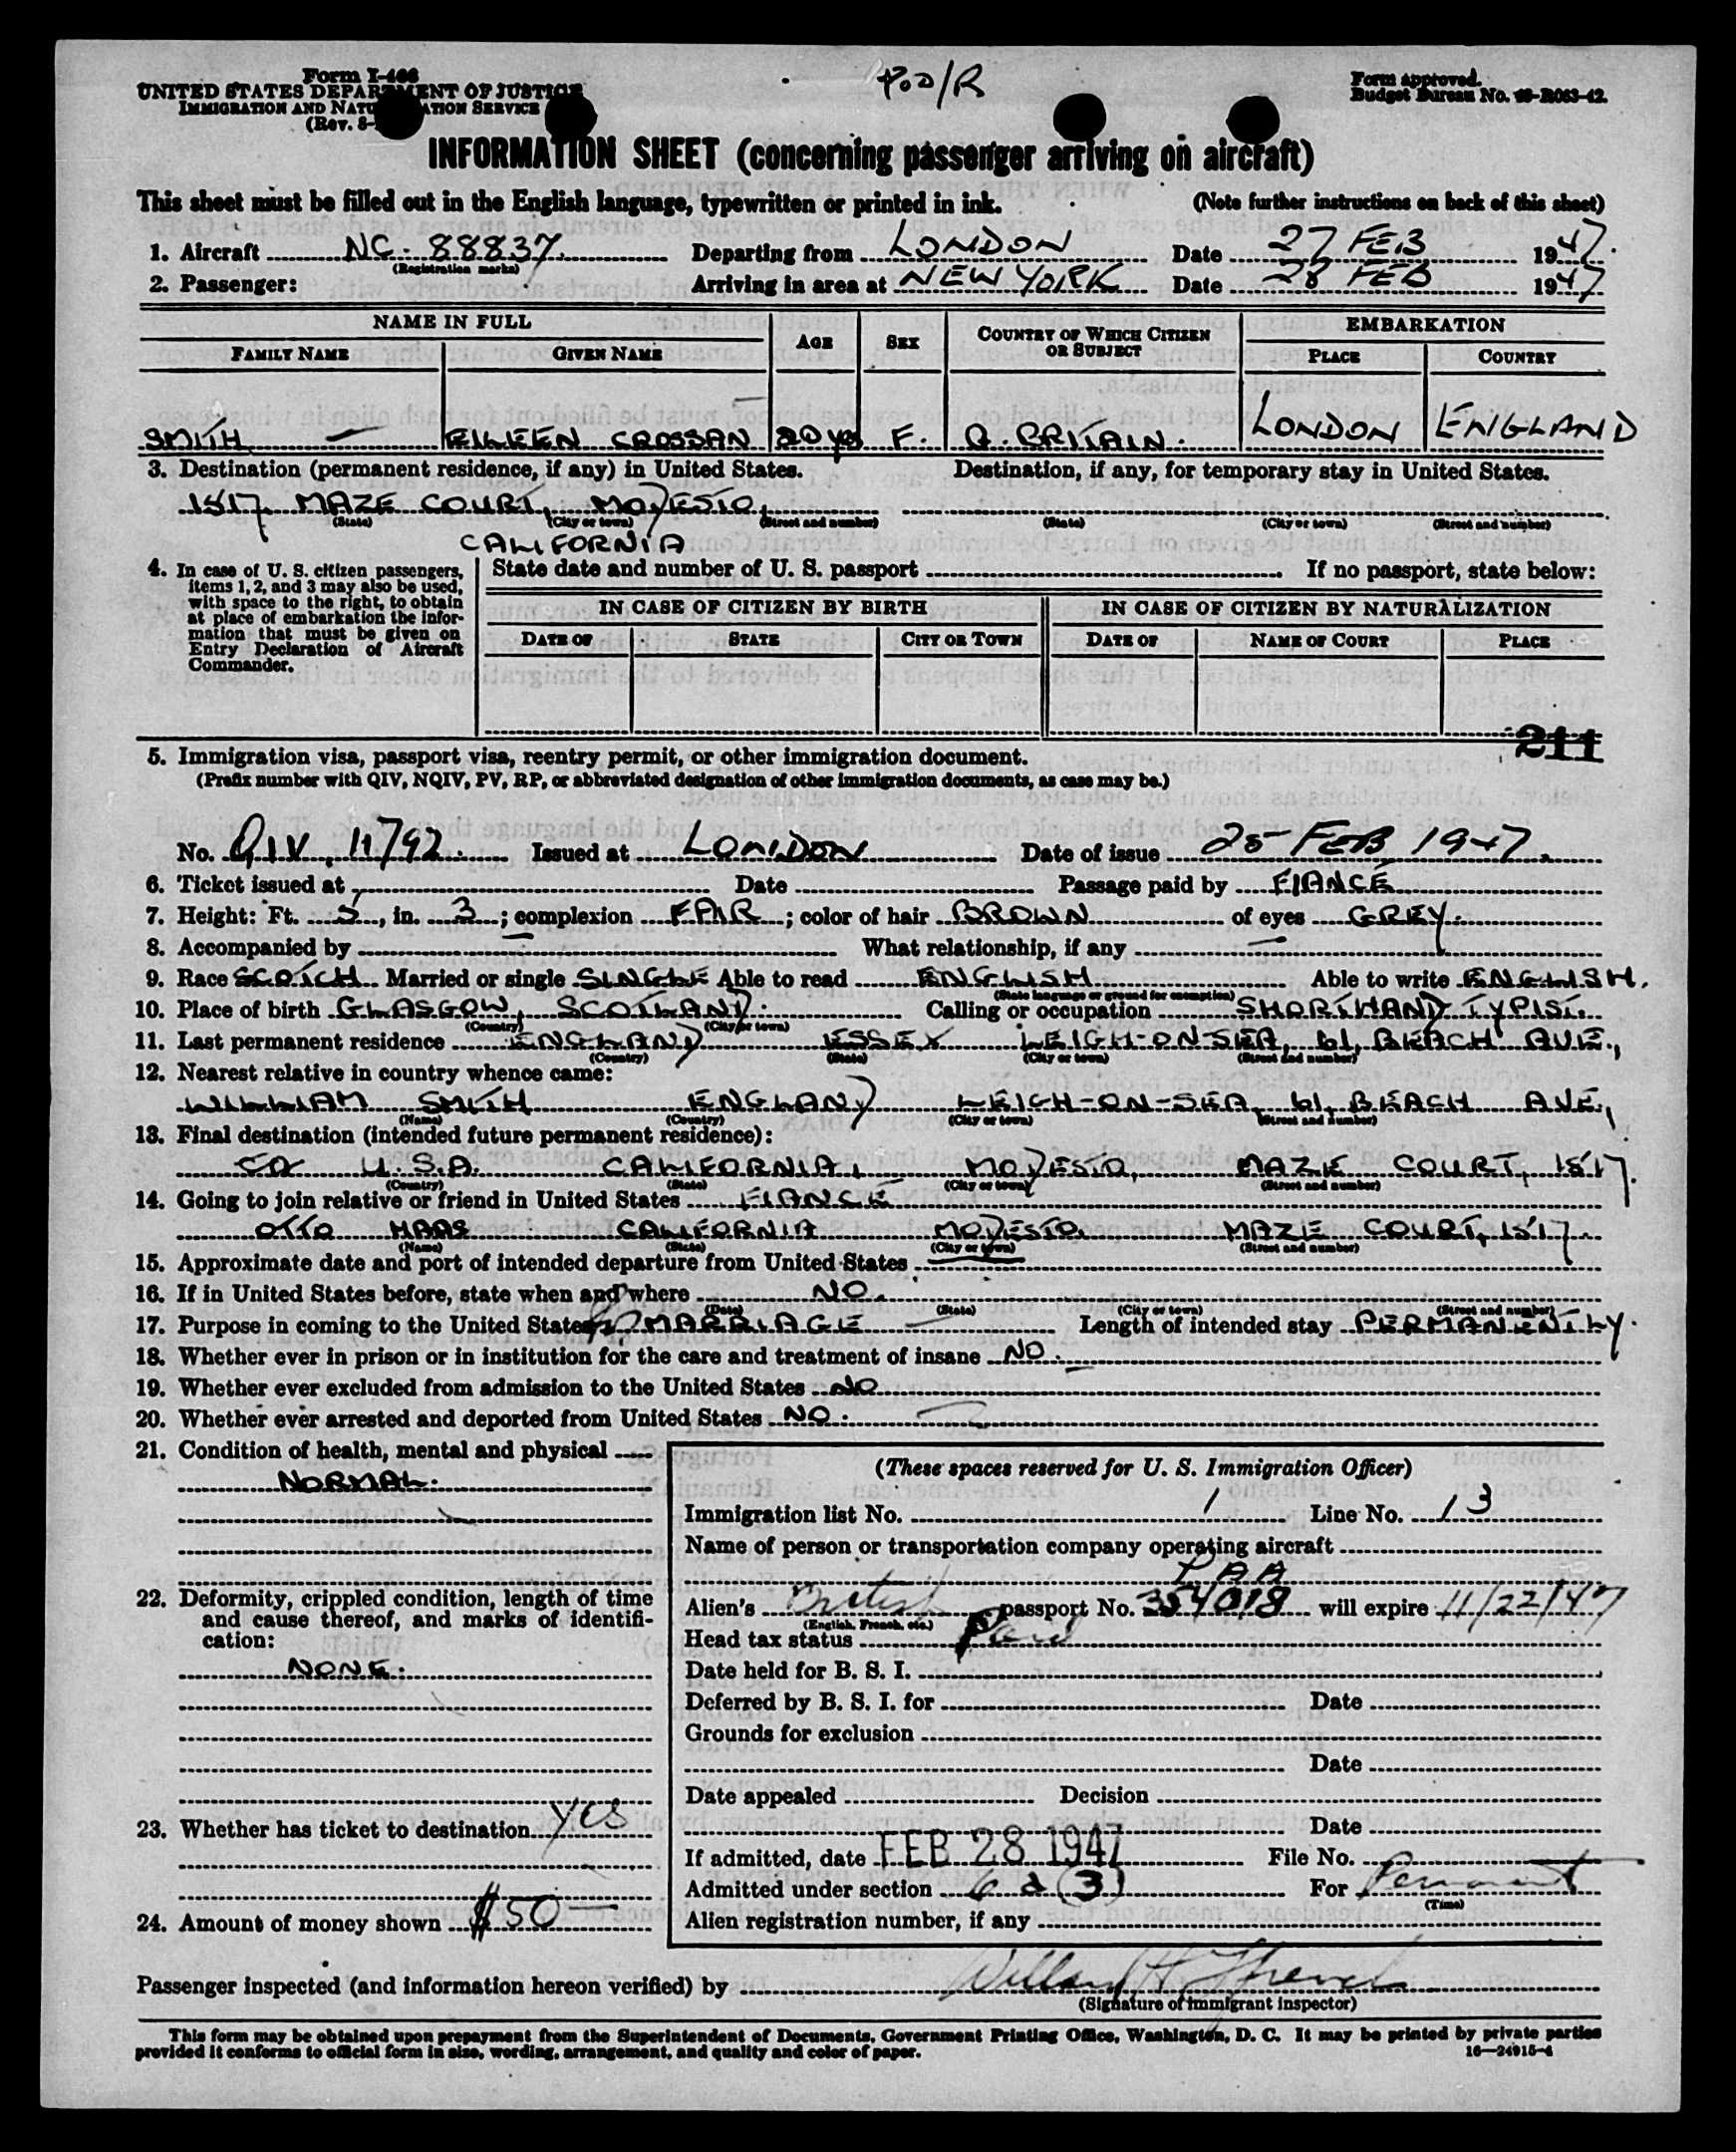 Form I-466
UNITED STATES DEPARTMENT OF JUSTICE
IMMIGRATION AND NATURALIZATION SERVICE
(Rev. 8-
Form approved.
Budget Bureau No. 43-R063-42.
INFORMATION SHEET (concerning passenger arriving on aircraft)
This sheet must be filled out in the English language, typewritten or printed in ink. (Note further instructions on back of this sheet)
1. Aircraft NC-88837. Departing from LONDON Date 27 FEB 1947.
(Registration marks)
2. Passenger: Arriving in area at NEW YORK Date 28 FEB 1947
NAME IN FULL AGE SEX COUNTRY OF WHICH CITIZEN OR SUBJECT EMBARKATION
FAMILY NAME GIVEN NAME PLACE COUNTRY
SMITH EILEEN CROSSAN 20 yrs F. G. BRITAIN. LONDON ENGLAND
3. Destination (permanent residence, if any) in United States. Destination, if any, for temporary stay in United States.
1517, MAZE COURT, MODESTO,
(State) (City or town) (Street and number) (State) (City or town) (Street and number)
CALIFORNIA
4. In case of U. S. citizen passengers, items 1, 2, and 3 may also be used, with space to the right, to obtain at place of embarkation the information that must be given on Entry Declaration of Aircraft Commander.
State date and number of U. S. passport If no passport, state below:
IN CASE OF CITIZEN BY BIRTH IN CASE OF CITIZEN BY NATURALIZATION
DATE OF STATE CITY OR TOWN DATE OF NAME OF COURT PLACE
211
5. Immigration visa, passport visa, reentry permit, or other immigration document.
(Prefix number with QIV, NQIV, PV, RP, or abbreviated designation of other immigration documents, as case may be.)
No. QIV 11792. Issued at LONDON Date of issue 25 FEB 1947.
6. Ticket issued at Date Passage paid by FIANCÉ
7. Height: Ft. 5, in. 3; complexion FAIR; color of hair BROWN of eyes GREY.
8. Accompanied by What relationship, if any
9. Race SCOTCH Married or single SINGLE Able to read ENGLISH Able to write ENGLISH.
(State language or ground for exemption)
10. Place of birth GLASGOW, SCOTLAND. Calling or occupation SHORTHAND TYPIST.
(Country) (City or town)
11. Last permanent residence ENGLAND ESSEX LEIGH-ON-SEA, 61, BEACH AVE.,
(Country) (State) (City or town) (Street and number)
12. Nearest relative in country whence came:
WILLIAM SMITH ENGLAND LEIGH-ON-SEA, 61, BEACH AVE,
(Name) (Country) (City or town) (Street and number)
13. Final destination (intended future permanent residence):
U.S.A. CALIFORNIA, MODESTO, MAZE COURT, 1517.
(Country) (State) (City or town) (Street and number)
14. Going to join relative or friend in United States FIANCÉ
OTTO HAAS CALIFORNIA MODESTO. MAZE COURT, 1517.
(Name) (State) (City or town) (Street and number)
15. Approximate date and port of intended departure from United States
16. If in United States before, state when and where NO.
(Date) (State) (City or town) (Street and number)
17. Purpose in coming to the United States MARRIAGE Length of intended stay PERMANENTLY.
18. Whether ever in prison or in institution for the care and treatment of insane NO.
19. Whether ever excluded from admission to the United States NO
20. Whether ever arrested and deported from United States NO.
21. Condition of health, mental and physical
NORMAL.
22. Deformity, crippled condition, length of time and cause thereof, and marks of identification:
NONE.
23. Whether has ticket to destination Yes
24. Amount of money shown $50
(These spaces reserved for U. S. Immigration Officer)
Immigration list No. 1 Line No. 13
Name of person or transportation company operating aircraft
PAA
Alien's British passport No. 354018 will expire 11/22/47
(English, French, etc.)
Head tax status Paid
Date held for B. S. I.
Deferred by B. S. I. for Date
Grounds for exclusion
Date
Date appealed Decision
Date
If admitted, date FEB 28 1947 File No.
Admitted under section 6 a (3) For Permanent
(Time)
Alien registration number, if any
Passenger inspected (and information hereon verified) by
(Signature of immigrant inspector)
This form may be obtained upon prepayment from the Superintendent of Documents, Government Printing Office, Washington, D. C. It may be printed by private parties
provided it conforms to official form in size, wording, arrangement, and quality and color of paper. 16—24915-4